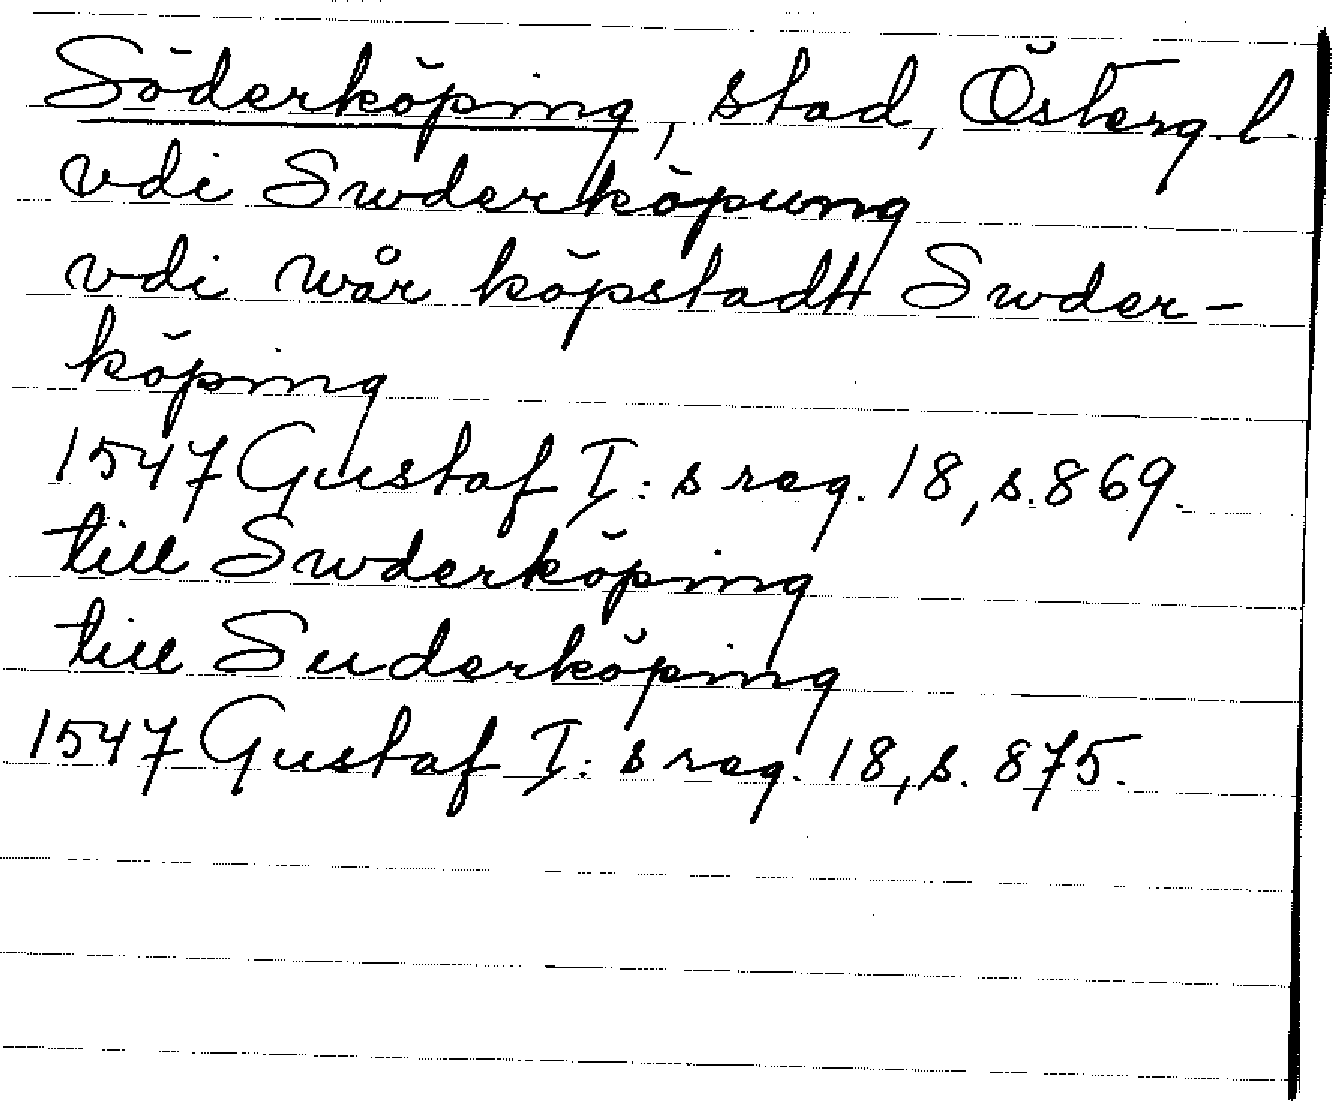 Söderköping, stad, Österg. l.
vdi Swderköpung
vdi wår köpstadh Swder-
köping
1547 Gustaf I: s reg. 18, s. 869.
till Swderköping
till Suderköping
1547 Gustaf I: s reg. 18, s. 875.